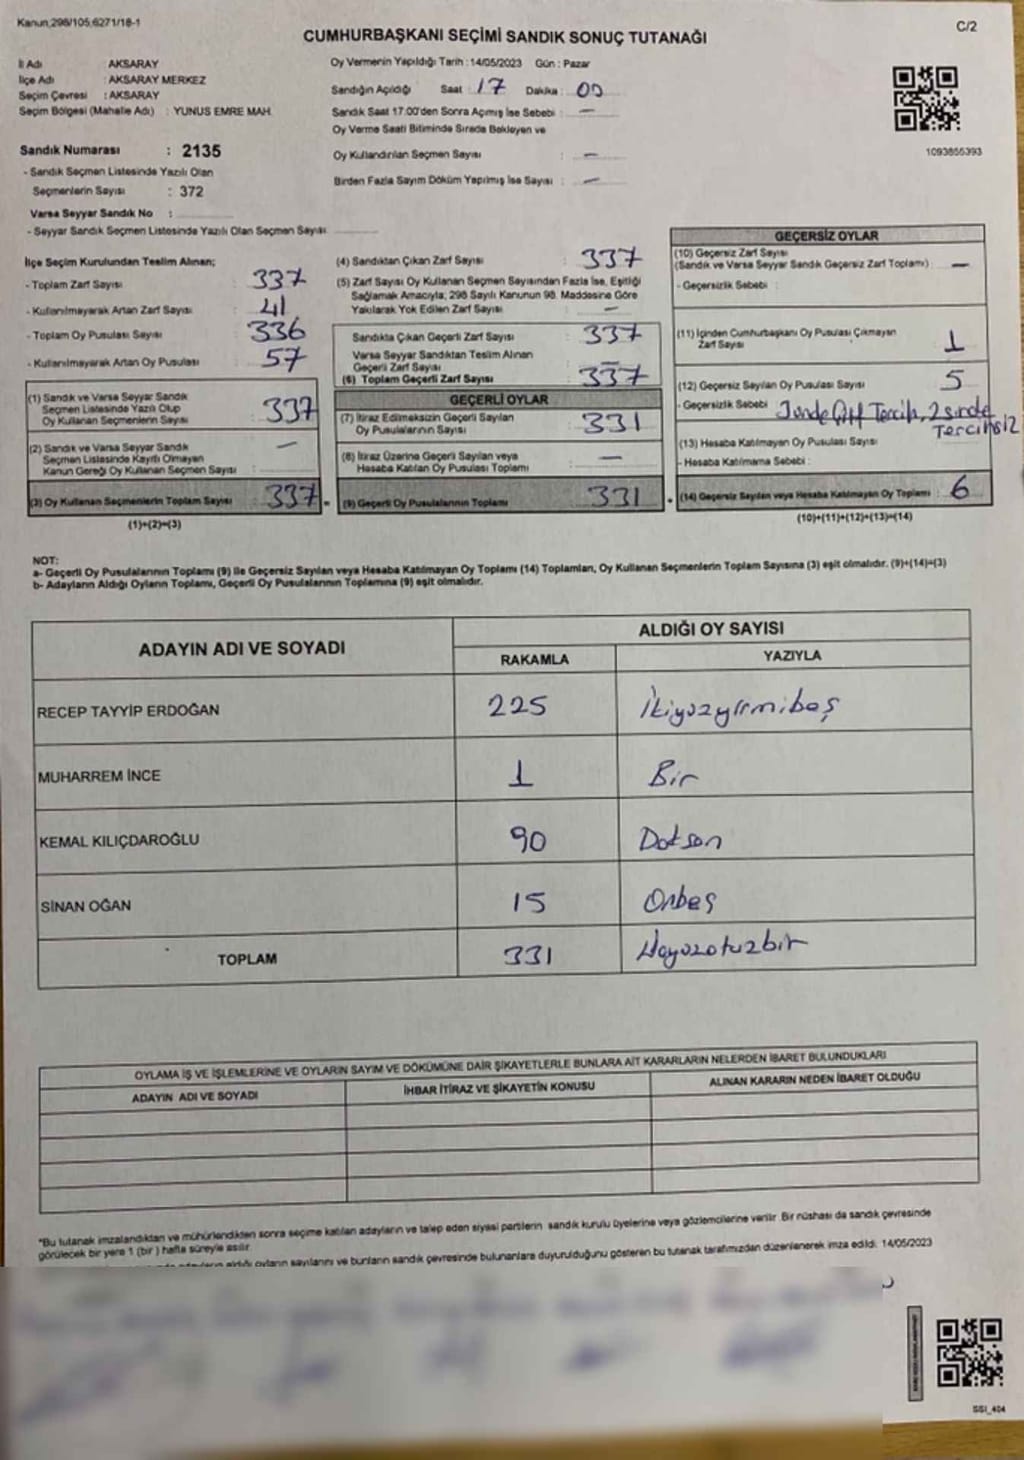 Kanun;298/105,6271/18-1
C/2
CUMHURBAŞKANI SEÇİMİ SANDIK SONUÇ TUTANAĞI
İl Adı : AKSARAY
İlçe Adı : AKSARAY MERKEZ
Seçim Çevresi : AKSARAY
Seçim Bölgesi (Mahalle Adı) : YUNUS EMRE MAH.
Sandık Numarası : 2135
- Sandık Seçmen Listesinde Yazılı Olan
Seçmenlerin Sayısı : 372
Varsa Seyyar Sandık No :
- Seyyar Sandık Seçmen Listesinde Yazılı Olan Seçmen Sayısı
Oy Vermenin Yapıldığı Tarih : 14/05/2023 Gün : Pazar
Sandığın Açıldığı Saat : 17 Dakika : 00
Sandık Saat 17.00'den Sonra Açımış İse Sebebi : —
Oy Verme Saati Bitiminde Sırada Bekleyen ve
Oy Kullandırılan Seçmen Sayısı : —
Birden Fazla Sayım Döküm Yapılmış İse Sayısı : —
1093855393
İlçe Seçim Kurulundan Teslim Alınan;
- Toplam Zarf Sayısı : 337
- Kullanılmayarak Artan Zarf Sayısı : 41
- Toplam Oy Pusulası Sayısı : 336
- Kullanılmayarak Artan Oy Pusulası : 57
(1) Sandık ve Varsa Seyyar Sandık
Seçmen Listesinde Yazılı Olup
Oy Kullanan Seçmenlerin Sayısı : 337
(2) Sandık ve Varsa Seyyar Sandık
Seçmen Listesinde Kayıtlı Olmayan
Kanun Gereği Oy Kullanan Seçmen Sayısı : —
(3) Oy Kullanan Seçmenlerin Toplam Sayısı : 337
(1)+(2)=(3)
(4) Sandıktan Çıkan Zarf Sayısı : 337
(5) Zarf Sayısı Oy Kullanan Seçmen Sayısından Fazla İse, Eşitliği
Sağlamak Amacıyla; 298 Sayılı Kanunun 98. Maddesine Göre
Yakılarak Yok Edilen Zarf Sayısı : —
Sandıkta Çıkan Geçerli Zarf Sayısı : 337
Varsa Seyyar Sandıktan Teslim Alınan
Geçerli Zarf Sayısı : —
(6) Toplam Geçerli Zarf Sayısı : 337
GEÇERLİ OYLAR
(7) İtiraz Edilmeksizin Geçerli Sayılan
Oy Pusulalarının Sayısı : 331
(8) İtiraz Üzerine Geçerli Sayılan veya
Hesaba Katılan Oy Pusulası Toplamı : —
(9) Geçerli Oy Pusulalarının Toplamı : 331
GEÇERSİZ OYLAR
(10) Geçersiz Zarf Sayısı
(Sandık ve Varsa Seyyar Sandık Geçersiz Zarf Toplamı) : —
- Geçersizlik Sebebi :
(11) İçinden Cumhurbaşkanı Oy Pusulası Çıkmayan
Zarf Sayısı 1
(12) Geçersiz Sayılan Oy Pusulası Sayısı 5
- Geçersizlik Sebebi 3ünde Çift Tercih, 2sinde
Tercihsiz
(13) Hesaba Katılmayan Oy Pusulası Sayısı
- Hesaba Katılmama Sebebi :
(14) Geçersiz Sayılan veya Hesaba Katılmayan Oy Toplamı : 6
(10)+(11)+(12)+(13)=(14)
NOT:
a- Geçerli Oy Pusulalarının Toplamı (9) ile Geçersiz Sayılan veya Hesaba Katılmayan Oy Toplamı (14) Toplamları, Oy Kullanan Seçmenlerin Toplam Sayısına (3) eşit olmalıdır. (9)+(14)=(3)
b- Adayların Aldığı Oyların Toplamı, Geçerli Oy Pusulalarının Toplamına (9) eşit olmalıdır.
ADAYIN ADI VE SOYADI
ALDIĞI OY SAYISI
RAKAMLA YAZIYLA
RECEP TAYYİP ERDOĞAN 225 İkiyüzyirmibeş
MUHARREM İNCE 1 Bir
KEMAL KILIÇDAROĞLU 90 Doksan
SİNAN OĞAN 15 Onbeş
TOPLAM 331 Üçyüzotuzbir
OYLAMA İŞ VE İŞLEMLERİNE VE OYLARIN SAYIM VE DÖKÜMÜNE DAİR ŞİKAYETLERLE BUNLARA AİT KARARLARIN NELERDEN İBARET BULUNDUKLARI
ADAYIN ADI VE SOYADI İHBAR İTİRAZ VE ŞİKAYETİN KONUSU ALINAN KARARIN NEDEN İBARET OLDUĞU
*Bu tutanak imzalandıktan ve mühürlendikten sonra seçime katılan adayların ve talep eden siyasi partilerin sandık kurulu üyelerine veya gözlemcilerine verilir. Bir nüshası da sandık çevresinde
görülecek bir yere 1 (bir) hafta süreyle asılır.
adayların aldığı oyların sayılarını ve bunların sandık çevresinde bulunanlara duyurulduğunu gösteren bu tutanak tarafımızdan düzenlenerek imza edildi. 14/05/2023
SSI_404